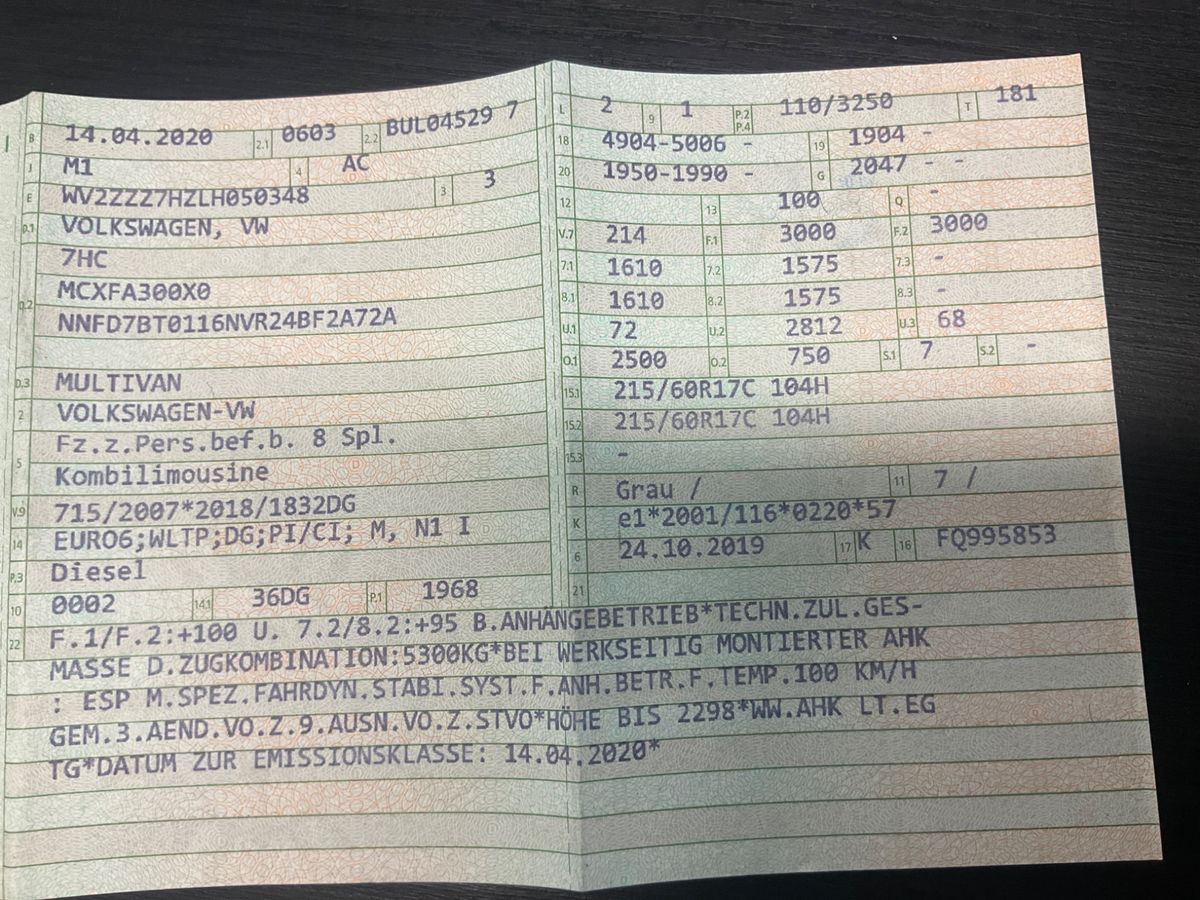 B 14.04.2020 2.1 0603 2.2 BUL04529 7
J M1 4 AC
E WV2ZZZ7HZLH050348 3 3
D.1 VOLKSWAGEN, VW
7HC
D.2 MCXFA300X0
NNFD7BT0116NVR24BF2A72A
D.3 MULTIVAN
2 VOLKSWAGEN-VW
5 Fz.z.Pers.bef.b. 8 Spl.
Kombilimousine
V.9 715/2007*2018/1832DG
14 EURO6;WLTP;DG;PI/CI; M, N1 I
P.3 Diesel
10 0002 14.1 36DG P.1 1968
L 2 9 1 P.2 P.4 110/3250 T 181
18 4904-5006 - 19 1904 -
20 1950-1990 - G 2047 - -
12 13 100 Q -
V.7 214 F.1 3000 F.2 3000
7.1 1610 7.2 1575 7.3 -
8.1 1610 8.2 1575 8.3 -
U.1 72 U.2 2812 U.3 68
O.1 2500 O.2 750 S.1 7 S.2 -
15.1 215/60R17C 104H
15.2 215/60R17C 104H
15.3 -
R Grau / 11 7 /
K e1*2001/116*0220*57
6 24.10.2019 17 K 16 FQ995853
21
22 F.1/F.2:+100 U. 7.2/8.2:+95 B.ANHÄNGEBETRIEB*TECHN.ZUL.GES-
MASSE D.ZUGKOMBINATION:5300KG*BEI WERKSEITIG MONTIERTER AHK
: ESP M.SPEZ.FAHRDYN.STABI.SYST.F.ANH.BETR.F.TEMP.100 KM/H
GEM.3.AEND.VO.Z.9.AUSN.VO.Z.STVO*HÖHE BIS 2298*WW.AHK LT.EG
TG*DATUM ZUR EMISSIONSKLASSE: 14.04.2020*